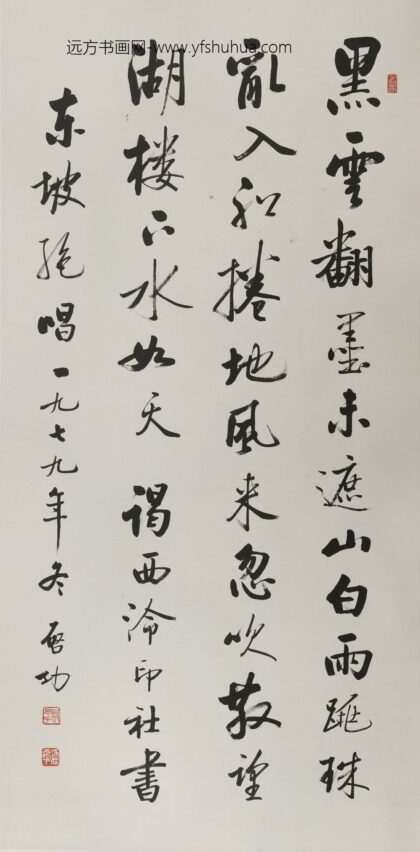 远方书画网-www.yfshuhua.com
黑雲翻墨未遮山白雨跳珠
亂入船捲地風来忽吹散望
湖楼下水如天 謁西泠印社書
东坡绝唱一九七九年冬 启功